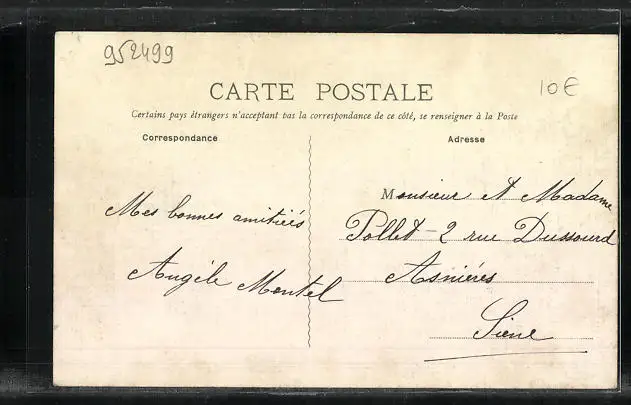 952499
CARTE POSTALE
10€
Certains pays étrangers n'acceptant pas la correspondance de ce côté, se renseigner à la Poste
Correspondance
Mes bonnes amitiés
Angèle Montel
Adresse
Monsieur et Madame
Pollet - 2 rue Dussourd
Asnières
Seine